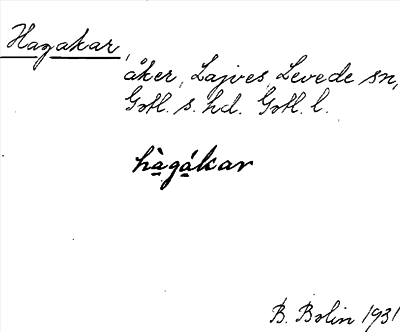 Hagakar,
åker, Lajves, Levede sn,
Gotl. s. hd. Gotl. l.
hà̱gá̱kar
B. Bolin 1931